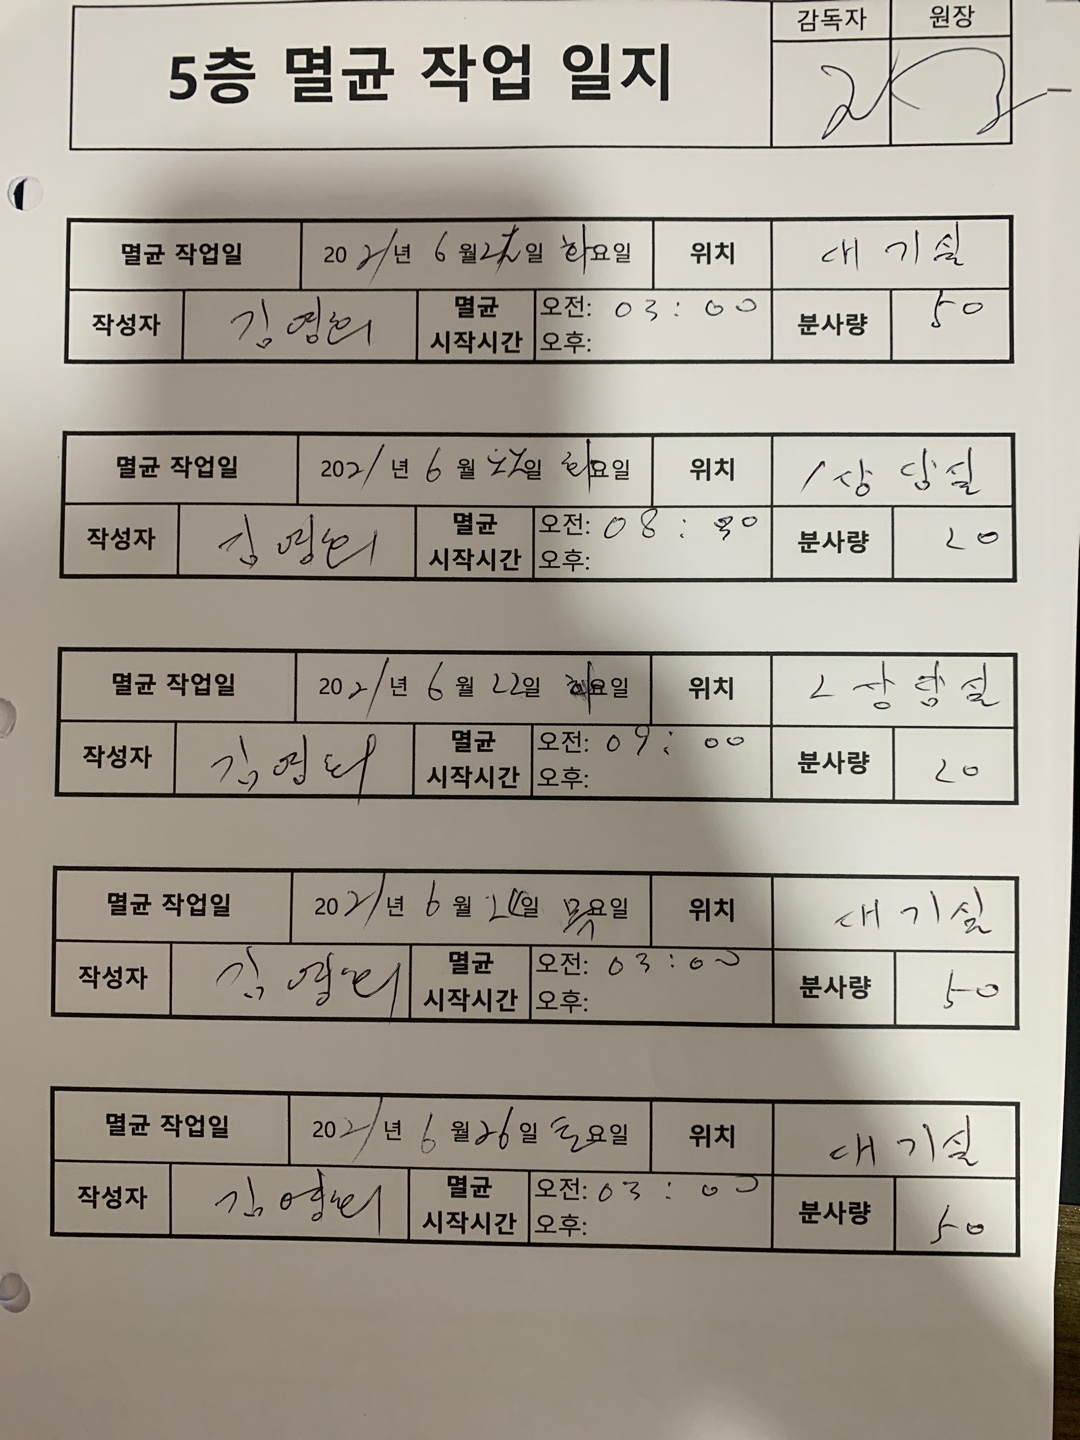 감독자 원장
5층 멸균 작업 일지
멸균 작업일 2021년 6월 22일 화요일 위치 대기실
작성자 김영희 멸균 시작시간 오전: 03:00 분사량 50
오후:
멸균 작업일 2021년 6월 22일 화요일 위치 1상담실
작성자 김영희 멸균 시작시간 오전: 08:30 분사량 20
오후:
멸균 작업일 2021년 6월 22일 화요일 위치 2상담실
작성자 김영희 멸균 시작시간 오전: 09:00 분사량 20
오후:
멸균 작업일 2021년 6월 24일 목요일 위치 대기실
작성자 김영희 멸균 시작시간 오전: 03:00 분사량 50
오후:
멸균 작업일 2021년 6월 26일 토요일 위치 대기실
작성자 김영희 멸균 시작시간 오전: 03:00 분사량 50
오후: